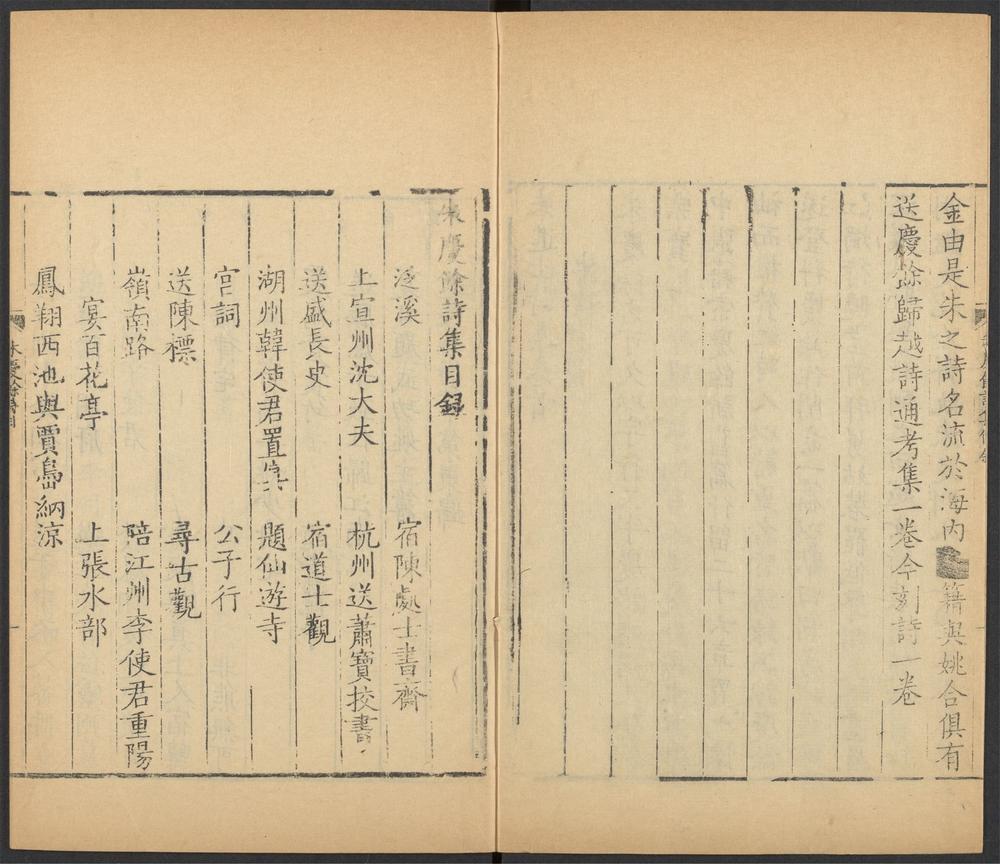 金由是朱之詩名流於海内籍與姚合俱有
送慶餘歸越詩通考集一卷今刻詩一卷
朱慶餘詩集目録
泛溪
宿陳處士書齋
上宣州沈大夫
杭州送蕭寶校書
送盛長史
宿道士觀
湖州韓使君置宴
題仙遊寺
宮詞
公子行
送陳標
尋古觀
嶺南路
陪江州李使君重陽
宴百花亭
上張水部
鳳翔西池與賈島納涼
朱慶餘目
一